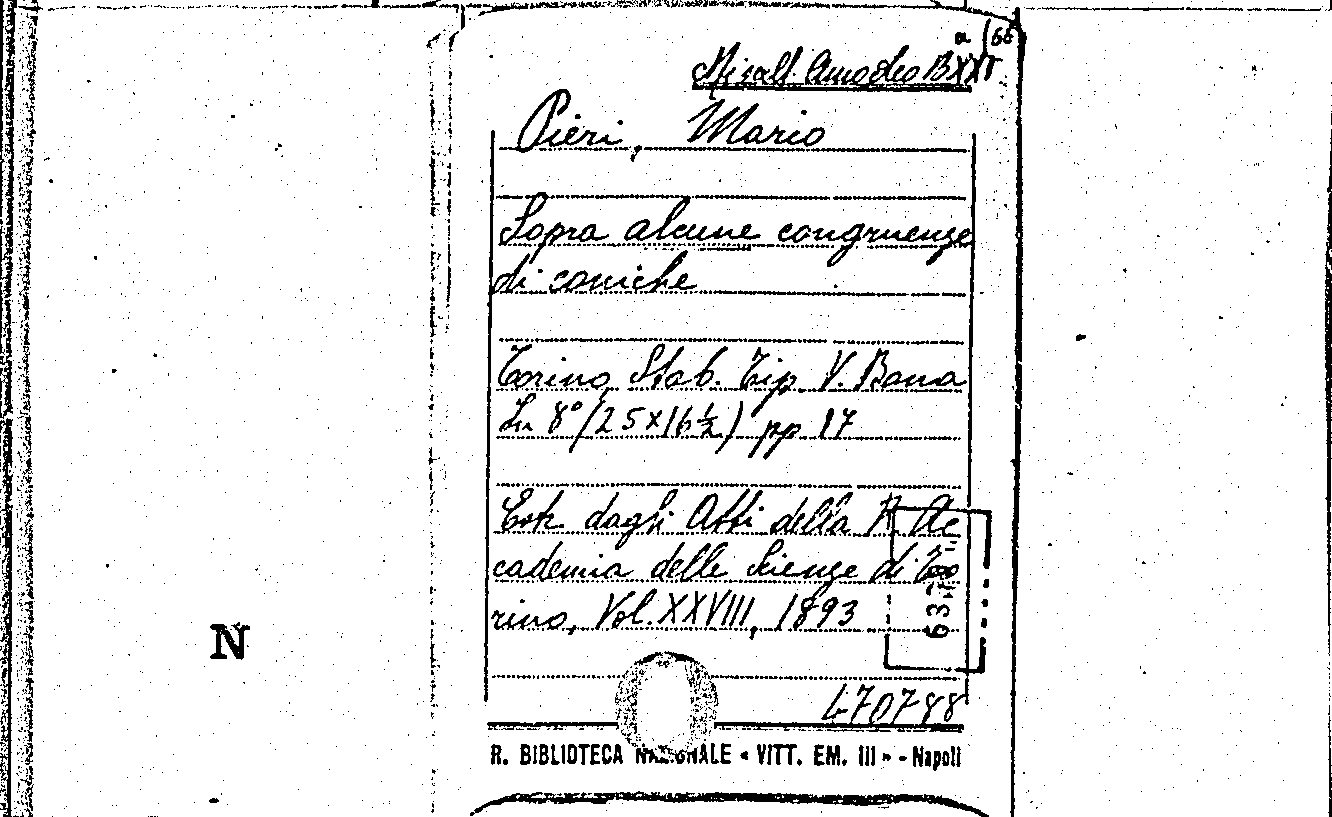 a (66
Miscell. Amodeo BXXI
Pieri, Mario
Sopra alcune congruenze
di coniche
Torino, Stab. Tip. V. Bona
In 8° (25x16½) pp. 17
Estr. dagli Atti della R. Ac
cademia delle Scienze di To
rino, Vol. XXVIII, 1893
632
470788
R. BIBLIOTECA NAZIONALE « VITT. EM. III » - Napoli
N